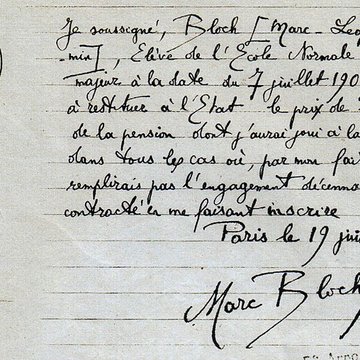 Je soussigné, Bloch [Marc - Leo
-min], Elève de l'Ecole Normale
majeur à la date du 7 juillet 190
à restituer à l'Etat le prix de
de la pension dont j'aurai joui à la
dans tous les cas où, par mon fai
remplirais pas l'engagement décenn
contracté en me faisant inscrire
Paris le 19 jui
Marc Bloch